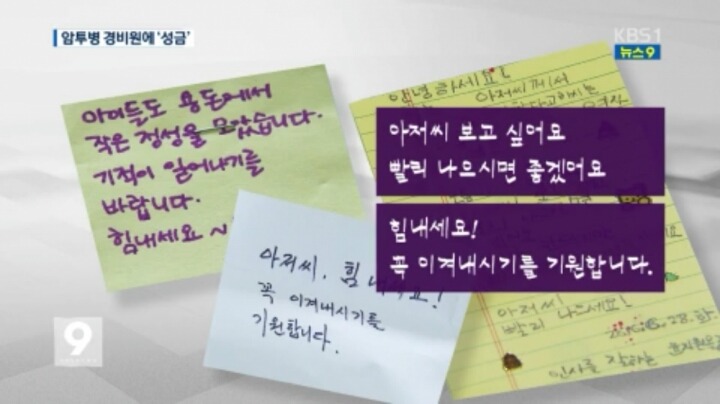 암투병 경비원에 '성금'
KBS1
뉴스9
아이들도 용돈에서
작은 정성을 모았습니다.
기적이 일어나기를
바랍니다.
힘내세요~
안녕하세요!
아저씨께서
아저씨 보고 싶어요
빨리 나으시면 좋겠어요
힘내세요!
꼭 이겨내시기를 기원합니다.
아저씨, 힘내세요!
꼭 이겨내시기를
기원합니다.
아저씨!
빨리 나으세요!
인사를 잘하는
9